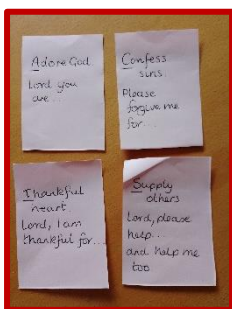 Adore God
Lord you
are...
Confess
sins.
Please
forgive me
for...
Thankful
heart
Lord, I am
thankful for...
Supply
others
Lord, please
help...
and help me
too